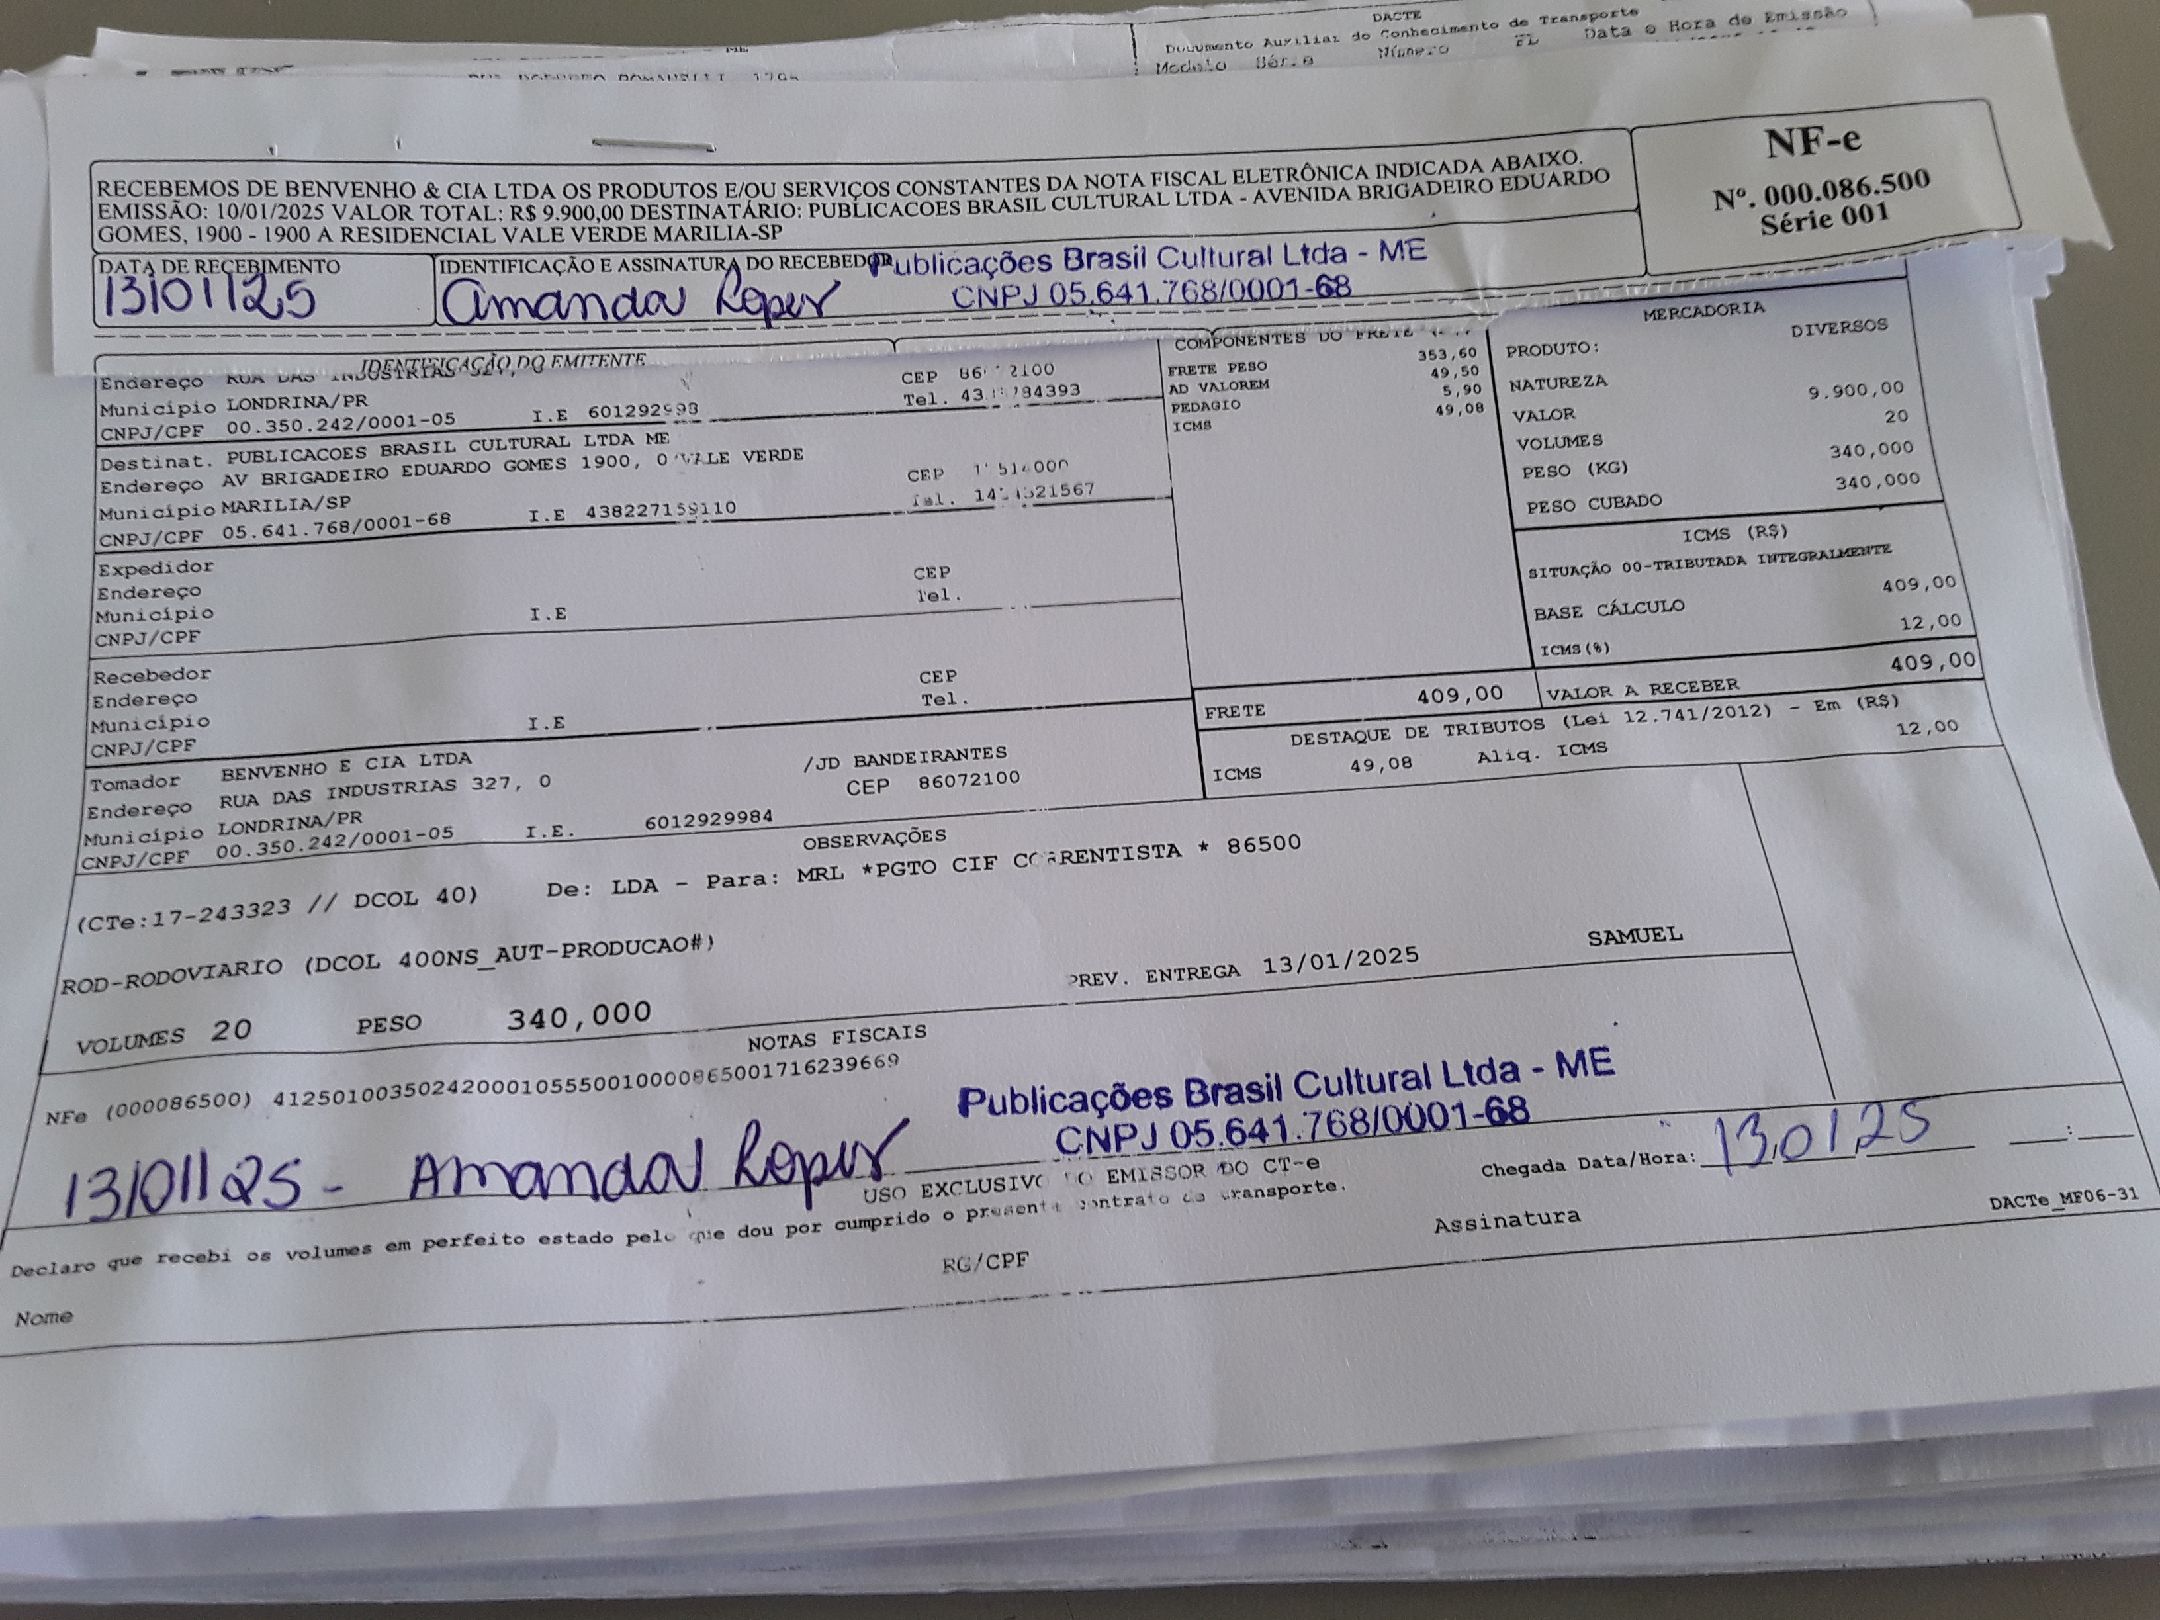 DACTE
Documento Auxiliar do Conhecimento de Transporte
Modelo Série Número FL Data e Hora de Emissão
NF-e
Nº. 000.086.500
Série 001
RECEBEMOS DE BENVENHO & CIA LTDA OS PRODUTOS E/OU SERVIÇOS CONSTANTES DA NOTA FISCAL ELETRÔNICA INDICADA ABAIXO.
EMISSÃO: 10/01/2025 VALOR TOTAL: R$ 9.900,00 DESTINATÁRIO: PUBLICACOES BRASIL CULTURAL LTDA - AVENIDA BRIGADEIRO EDUARDO
GOMES, 1900 - 1900 A RESIDENCIAL VALE VERDE MARILIA-SP
DATA DE RECEBIMENTO
13/01/25
IDENTIFICAÇÃO E ASSINATURA DO RECEBEDOR
Amanda Lopes
Publicações Brasil Cultural Ltda - ME
CNPJ 05.641.768/0001-68
IDENTIFICAÇÃO DO EMITENTE
Endereço RUA DAS INDUSTRIAS CEP 2100
Município LONDRINA/PR Tel.
CNPJ/CPF 00.350.242/0001-05 I.E
Destinat. PUBLICACOES BRASIL CULTURAL LTDA ME
Endereço AV BRIGADEIRO EDUARDO GOMES 1900, 0 VALE VERDE
Município MARILIA/SP CEP
CNPJ/CPF 05.641.768/0001-68 I.E 438227159110 Tel.
Expedidor
Endereço CEP
Município I.E Tel.
CNPJ/CPF
Recebedor
Endereço CEP
Município I.E Tel.
CNPJ/CPF
Tomador BENVENHO E CIA LTDA
Endereço RUA DAS INDUSTRIAS 327, 0 /JD BANDEIRANTES
Município LONDRINA/PR CEP 86072100
CNPJ/CPF 00.350.242/0001-05 I.E. 6012929984
COMPONENTES DO FRETE
FRETE PESO 353,60
AD VALOREM 49,50
PEDAGIO 5,90
ICMS 49,08
MERCADORIA
PRODUTO: DIVERSOS
NATUREZA
VALOR 9.900,00
VOLUMES 20
PESO (KG) 340,000
PESO CUBADO 340,000
ICMS (R$)
SITUAÇÃO 00-TRIBUTADA INTEGRALMENTE
BASE CÁLCULO 409,00
ICMS(%) 12,00
FRETE 409,00 VALOR A RECEBER 409,00
DESTAQUE DE TRIBUTOS (Lei 12.741/2012) - Em (R$)
ICMS 49,08 Aliq. ICMS 12,00
OBSERVAÇÕES
(CTe:17-243323 // DCOL 40) De: LDA - Para: MRL *PGTO CIF CORRENTISTA * 86500
ROD-RODOVIARIO (DCOL 400NS_AUT-PRODUCAO#)
VOLUMES 20 PESO 340,000 PREV. ENTREGA 13/01/2025 SAMUEL
NOTAS FISCAIS
NFe (000086500) 41250100350242000105550010000865001716239669
Publicações Brasil Cultural Ltda - ME
CNPJ 05.641.768/0001-68
13/01/25 - Amanda Lopes
USO EXCLUSIVO DO EMISSOR DO CT-e
Chegada Data/Hora: 13.01.25 __:__
Declaro que recebi os volumes em perfeito estado pelo que dou por cumprido o presente contrato de transporte.
Nome RG/CPF Assinatura
DACTe_MF06-31